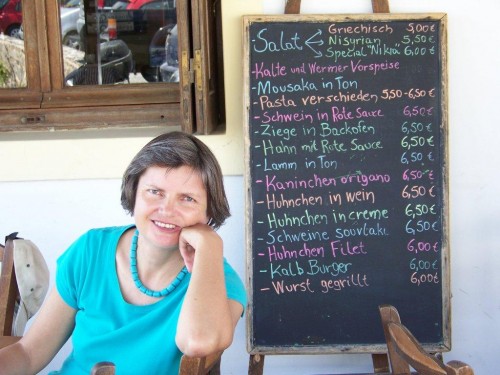 Salat Griechisch 5,00€
Nisyrian 5,50€
Spezial "Nikra" 6,00€
-Kalte und Wermer Vorspeise
-Mousaka in Ton
-Pasta verschieden 5,50-6,50€
-Schwein in Rote Sauce 6,50€
-Ziege in Backofen 6,50€
-Hahn mit Rote Sauce 6,50€
-Lamm in Ton 6,50€
-Kaninchen origano 6,50€
-Huhnchen in wein 6,50€
-Huhnchen in creme 6,50€
-Schweine souvlaki 6,50€
-Huhnchen Filet 6,00€
-Kalb Burger 6,00€
-Wurst gegrillt 6,00€